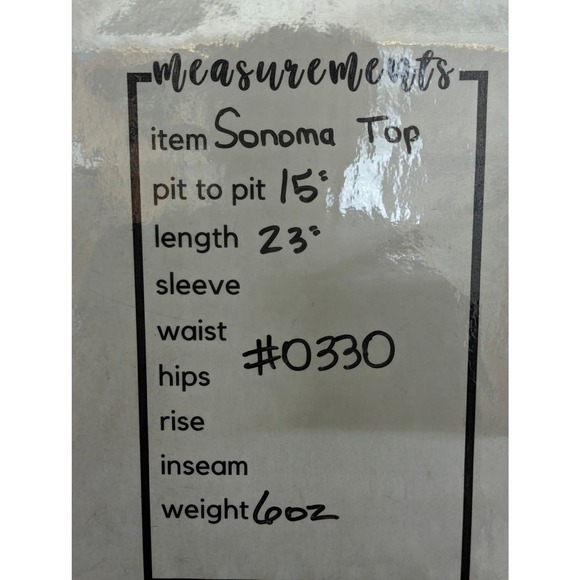 measurements
item Sonoma Top
pit to pit 15"
length 23"
sleeve
waist
#0330
hips
rise
inseam
weight 6oz